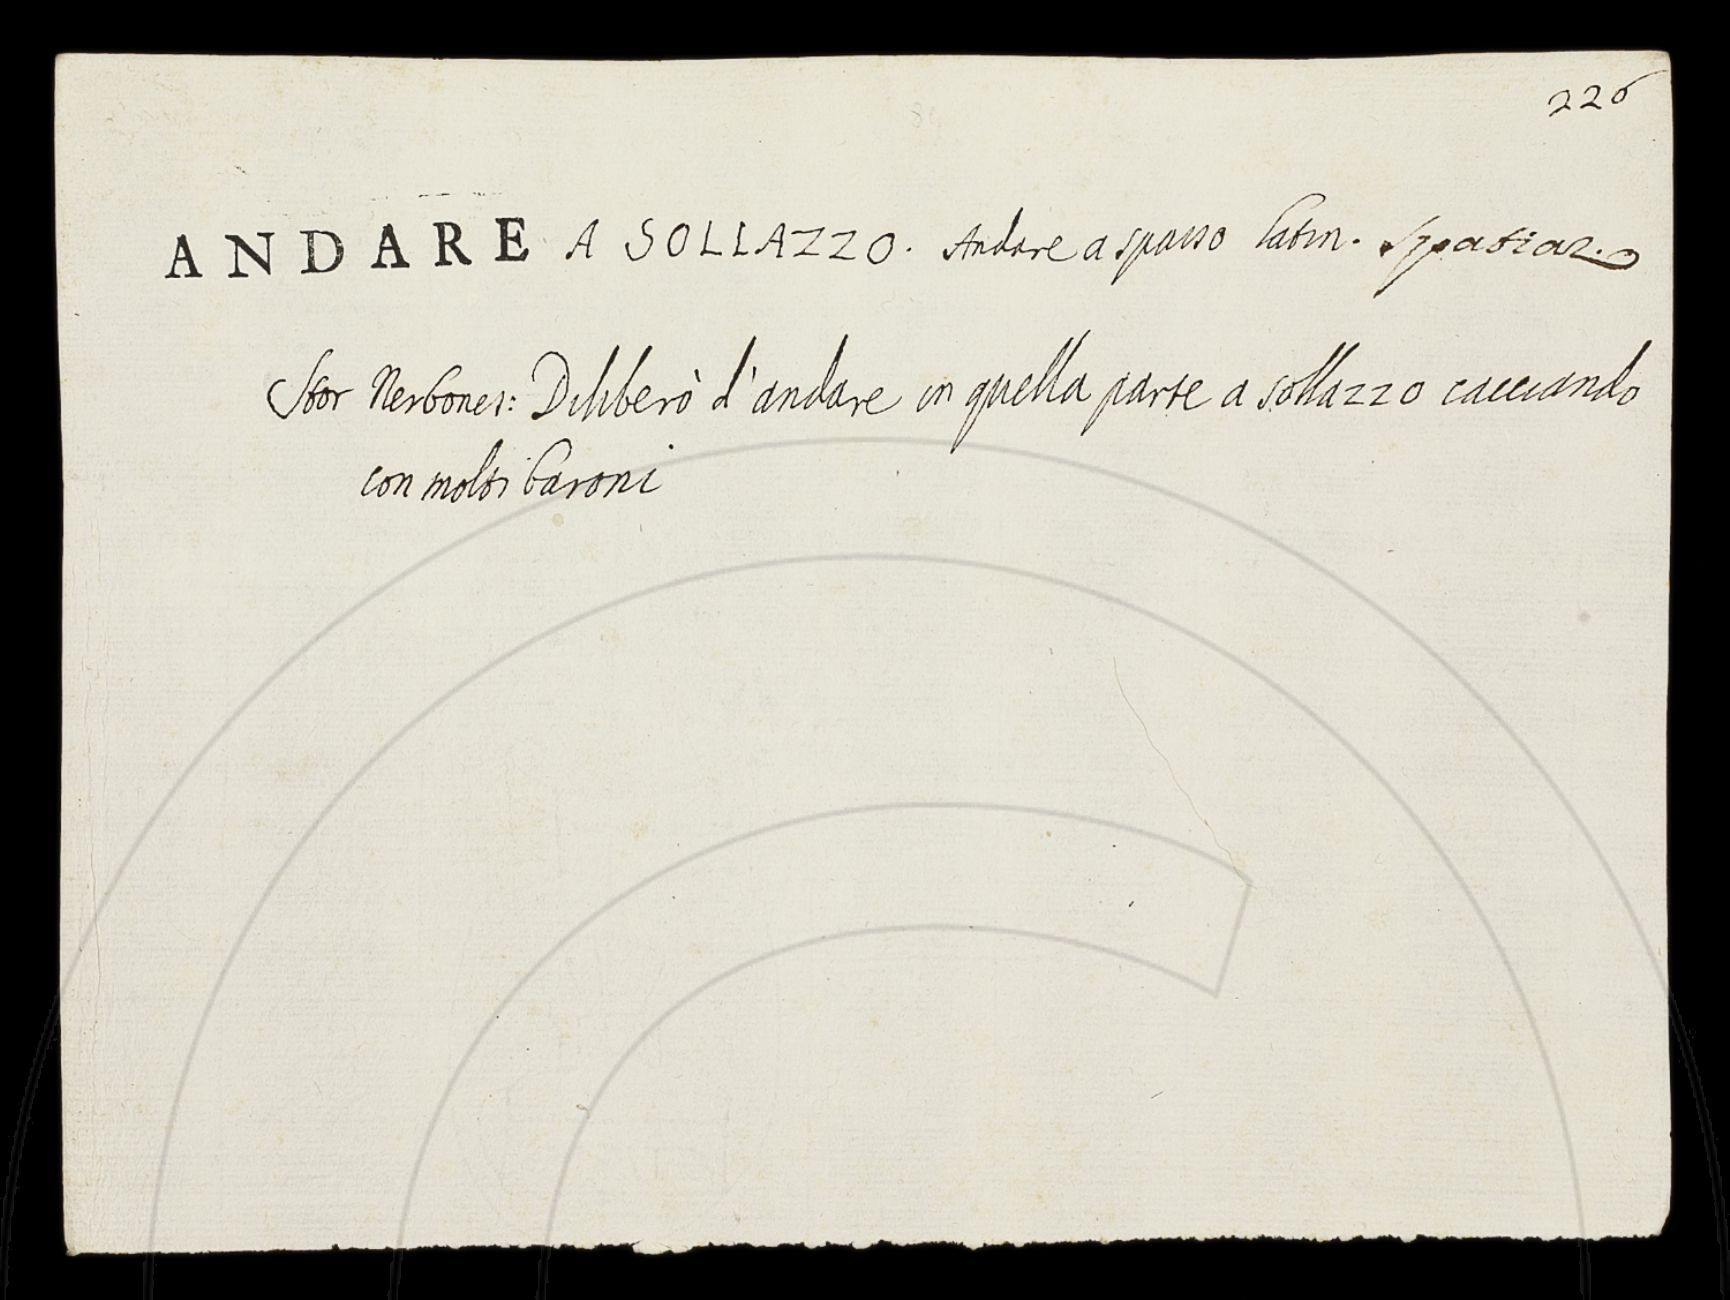 226
ANDARE A SOLLAZZO. Andare a spasso latin. Spatiar.
Stor Nerbones: Diliberò d'andare in quella parte a sollazzo cacciando
con molti baroni